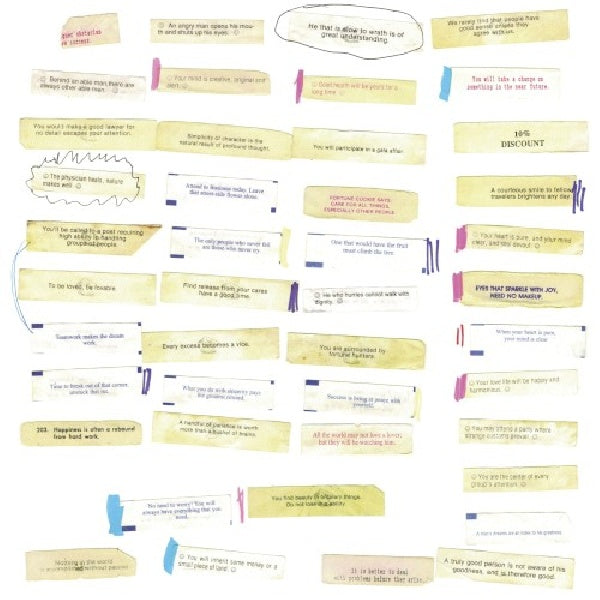 An angry man opens his mouth
and shuts up his eyes.
He that is slow to wrath is of
great understanding.
We rarely find that people have
good sense unless they
agree with us.
Behind an able man there are
always other able men.
Your mind is creative, original and
alert.
Good health will be yours for a
long time.
You will take a chance on
something in the near future.
You would make a good lawyer for
no detail escapes your attention.
Simplicity of character is the
natural result of profound thought.
You will participate in a gala affair.
10%
DISCOUNT
The physician heals, nature
makes well.
Attend to business today. Leave
that
alone.
FORTUNE COOKIE SAYS:
CARE FOR ALL THINGS,
ESPECIALLY OTHER PEOPLE.
A courteous smile to fellow
travelers brightens any day.
You'll be called to a post requiring
high ability in handling
groups of people.
The only people who never fail
are those who never try.
One that would have the fruit
must climb the tree.
Your heart is pure, and your mind
clear, and soul devout.
To be loved, be lovable.
Find release from your cares
have a good time.
He who hurries cannot walk with
dignity.
EYES THAT SPARKLE WITH JOY,
NEED NO MAKEUP.
Teamwork makes the dream
work.
Every excess becomes a vice.
You are surrounded by
fortune hunters.
When your heart is pure,
your mind is clear.
Time to break out of that corner,
unstuck that rut.
What you do with sincerity
Success is being at peace with
yourself.
Your love life will be happy and
harmonious.
203. Happiness is often a rebound
from hard work.
A handful of patience is worth
more than a bushel of brains.
All the world may not love a lover;
but they will be watching him.
You may attend a party where
strange customs prevail.
You are the center of every
group's attention.
No need to worry! You will
always have everything that you
need.
You find beauty in ordinary things.
Do not lose this ability.
Nothing in the world
is accomplished without passion.
You will inherit some money or a
small piece of land.
It is better to deal
with problems before they arise.
A truly good person is not aware of his
goodness, and is therefore good.